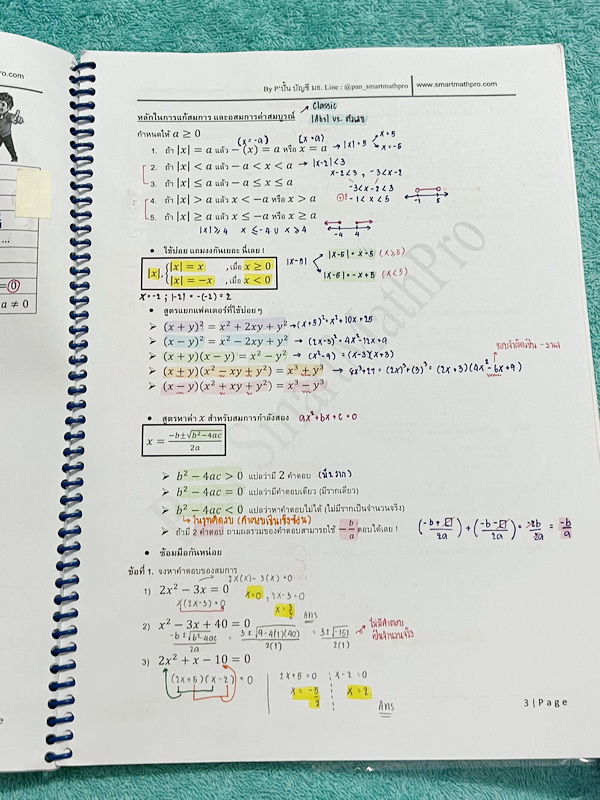 ro.com
By P'ปั้น บัญชี มธ. Line : @pan_smartmathpro | www.smartmathpro.com
หลักในการแก้สมการ และอสมการค่าสมบูรณ์ Classic
|Abs| vs. ตัวเลข
กำหนดให้ a ≥ 0 (x = -a) (x = a) x = 5
1. ถ้า |x| = a แล้ว -(x) = a หรือ x = a → |x| = 5 x = -5
2. ถ้า |x| < a แล้ว -a < x < a → |x-2| < 3
x-2 < 3 , -3 < x-2
3. ถ้า |x| ≤ a แล้ว -a ≤ x ≤ a -3 < x-2 < 3
4. ถ้า |x| > a แล้ว x < -a หรือ x > a -1 < x < 5 -1 5
5. ถ้า |x| ≥ a แล้ว x ≤ -a หรือ x ≥ a
|x| ≥ 4 x ≤ -4 ∪ x ≥ 4 -4 4
• ใช้บ่อย แถมงงกันเยอะ นี่เลย !
|x| , { |x| = x , เมื่อ x ≥ 0 |x-5| |x-5| = x-5 (x ≥ 5)
|x| = -x , เมื่อ x < 0 |x-5| = -x+5 (x < 5)
x = -2 ; |-2| = -(-2) = 2
• สูตรแยกแฟคเตอร์ที่ใช้บ่อย ๆ
➢ (x + y)² = x² + 2xy + y² → (x+5)² = x² + 10x + 25
➢ (x − y)² = x² − 2xy + y² → (2x-3)² = 4x² - 12x + 9
➢ (x + y)(x − y) = x² − y² → (x² - 9) = (x-3)(x+3)
➢ (x ± y)(x² − xy + y²) = x³ ± y³ → 8x³ + 27 = (2x)³ + (3)³ = (2x+3)(4x² - 6x + 9)
➢ (x − y)(x² + xy + y²) = x³ − y³
• สูตรหาค่า x สำหรับสมการกำลังสอง ax² + bx + c = 0
x = −b±√b²−4ac / 2a
➢ b² − 4ac > 0 แปลว่ามี 2 คำตอบ (มี 2 ราก)
➢ b² − 4ac = 0 แปลว่ามีคำตอบเดียว (มีรากเดียว)
➢ b² − 4ac < 0 แปลว่าหาคำตอบไม่ได้ (ไม่มีรากเป็นจำนวนจริง)
➢ ถ้ามี 2 คำตอบ ถามผลรวมของคำตอบสามารถใช้ −b/a ตอบได้เลย ! (-b+√/2a) + (-b-√/2a) = -2b/2a = -b/a
• ซ้อมมือกันหน่อย
ข้อที่ 1. จงหาคำตอบของสมการ
2x(x) - 3(x) = 0
1) 2x² − 3x = 0 x = 0 , 2x-3 = 0
x(2x-3) = 0 x = 3/2 Ans
2) x² − 3x + 40 = 0
-b±√b²-4ac / 2a = 3±√9-4(1)(40) / 2(1) = 3±√-151 / 2(1) ไม่มีคำตอบ
เป็นจำนวนจริง
3) 2x² + x − 10 = 0
(2x+5)(x-2) = 0 2x+5 = 0 x-2 = 0
x = -5/2 x = 2
Ans
3 | P a g e
...
= 0
a ≠ 0
SmartMathPro